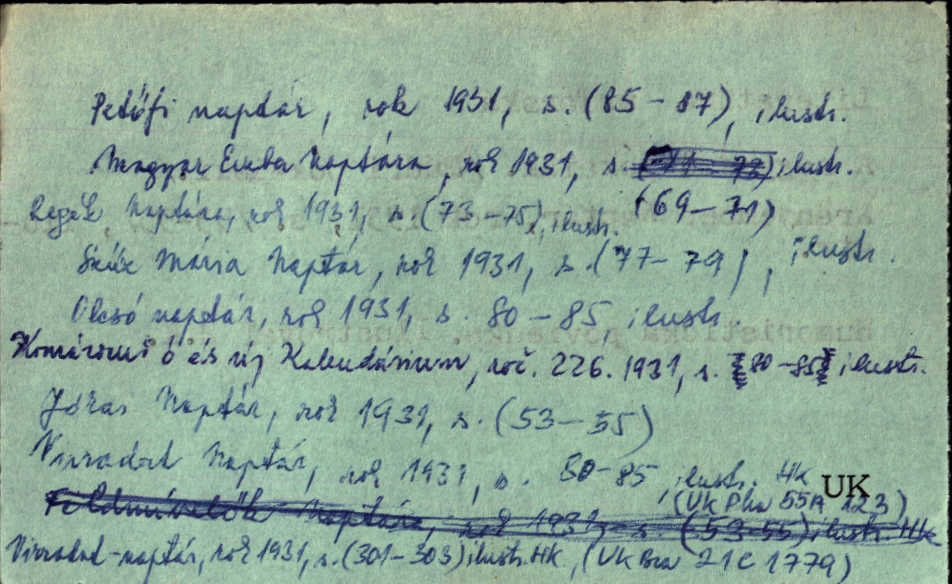 Petőfi naptár, rok 1931, s. (85-87), ilustr.
Magyar Ember Naptára, rok 1931, s. (71-73) ilustr.
(69-71)
Regék Naptára, rok 1931, s. (73-75), ilustr.
Szűz Mária Naptár, rok 1931, s. (77-79), ilustr.
Olcsó naptár, rok 1931, s. 80-85 ilustr
Komáromi ó és új Kalendárium, roč. 226. 1931, s. 80-85 ilustr.
Jókai Naptár, rok 1931, s. (53-55)
Virradat Naptár, rok 1931, s. 80-85, ilustr. Hk
UK
(UK Pha 55A 123)
Földművelők Naptára, rok 1931, s. (53-55) ilustr. Hk
Virradat-naptár, rok 1931, s. (301-303) ilustr. Hk, (UK Bra 21C 1779)